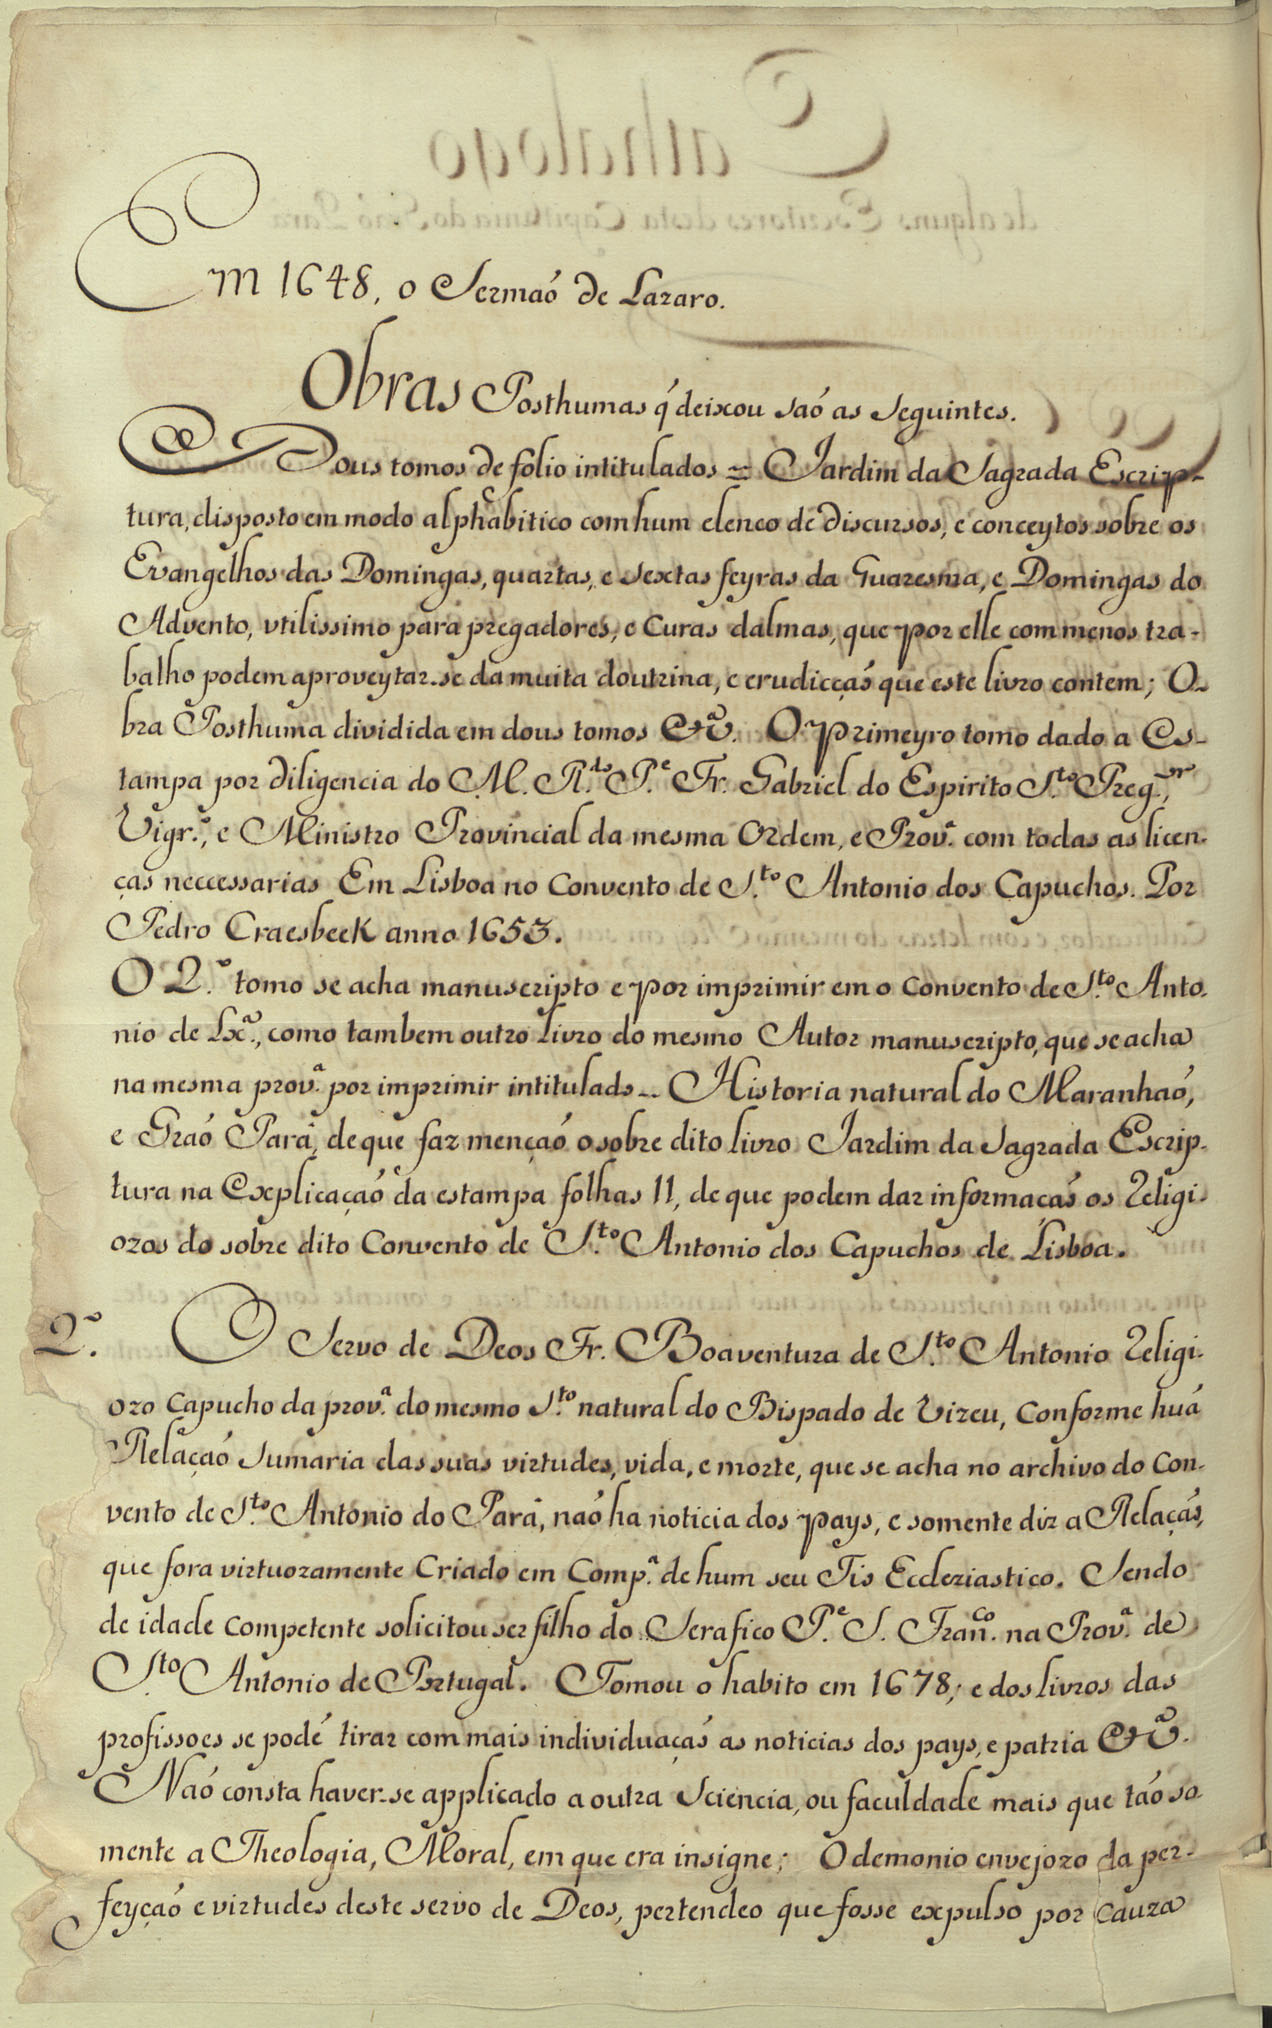 Em 1648, o Sermaó de Lazaro.
Obras Posthumas q̃ deixou saó as seguintes.
Dous tomos de folio intitulados = Jardim da Sagrada Escrip-
tura, disposto em modo alphabitico com hum elenco de discursos, e conceytos sobre os
Evangelhos das Domingas, quartas, e sextas feyras da Quaresma, e Domingas do
Advento, vtilissimo para pregadores, e Curas dalmas, que por elle com menos tra-
balho podem aproveytar-se da muita doutrina, e erudicçaó que este livro contem; O-
bra Posthuma dividida em dous tomos &ª. O primeyro tomo dado a Es-
tampa por diligencia do M. R.do P.e Fr. Gabriel do Espirito S.to Preg.or,
Vigr.º, e Ministro Provincial da mesma Ordem, e Prov.ª com todas as licen-
ças neccessarias Em Lisboa no Convento de S.to Antonio dos Capuchos. Por
Pedro Craesbeek anno 1653.
O 2.º tomo se acha manuscripto e por imprimir em o Convento de S.to Anto-
nio de Lx.ª, como tambem outro livro do mesmo Autor manuscripto, que se acha
na mesma prov.ª por imprimir intitulado -- Historia natural do Maranhaó,
e Graó Parâ, de que faz mençaó o sobre dito livro Jardim da Sagrada Escrip-
tura na Explicaçaó da estampa folhas 11, de que podem dar informacaó os Religi-
ozos do sobre dito Convento de S.to Antonio dos Capuchos de Lisboa.
2.º O Servo de Deos Fr. Boaventura de S.to Antonio Religi-
ozo Capucho da prov.ª do mesmo S.to natural do Bispado de Vizeu, Conforme huá
Relaçaó Sumaria das suas virtudes, vida, e morte, que se acha no archivo do Con-
vento de S.to Antonio do Parâ, naó ha noticia dos pays, e somente diz a Relaçaó,
que fora virtuozamente Criado em Comp.ª de hum seu Tio Eccleziastico. Sendo
de idade Competente solicitou ser filho do Serafico P.e S. Fran.co na Prov.ª de
S.to Antonio de Portugal. Tomou o habito em 1678; e dos livros das
profissoes se podé tirar com mais individuaçaó as noticias dos pays, e patria &ª.
Naó consta haver-se applicado a outra Sciencia, ou faculdade mais que taó so-
mente a Theologia, Moral, em que era insigne; O demonio envejozo da per-
feyçaó e virtudes deste servo de Deos, pertendeo que fosse expulso por cauza